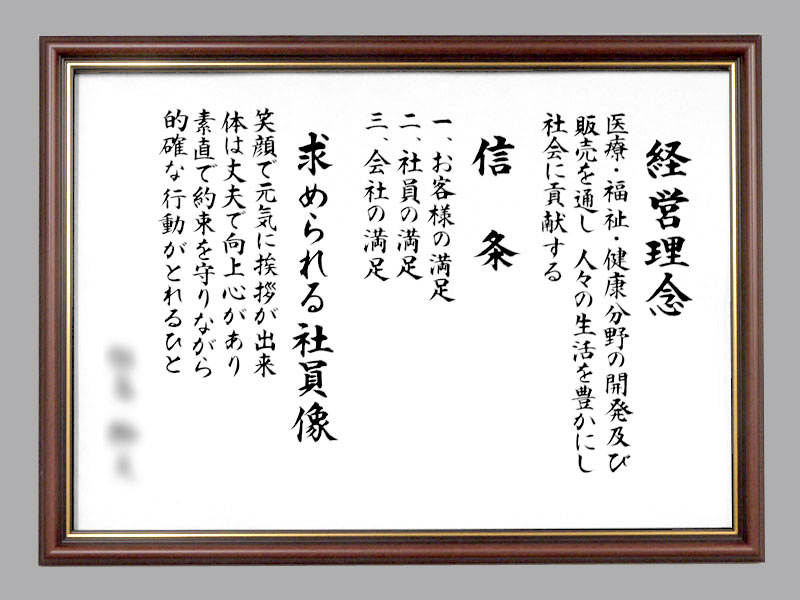 経営理念
医療・福祉・健康分野の開発及び
販売を通し 人々の生活を豊かにし
社会に貢献する
信条
一、お客様の満足
二、社員の満足
三、会社の満足
求められる社員像
笑顔で元気に挨拶が出来
体は丈夫で向上心があり
素直で約束を守りながら
的確な行動がとれるひと